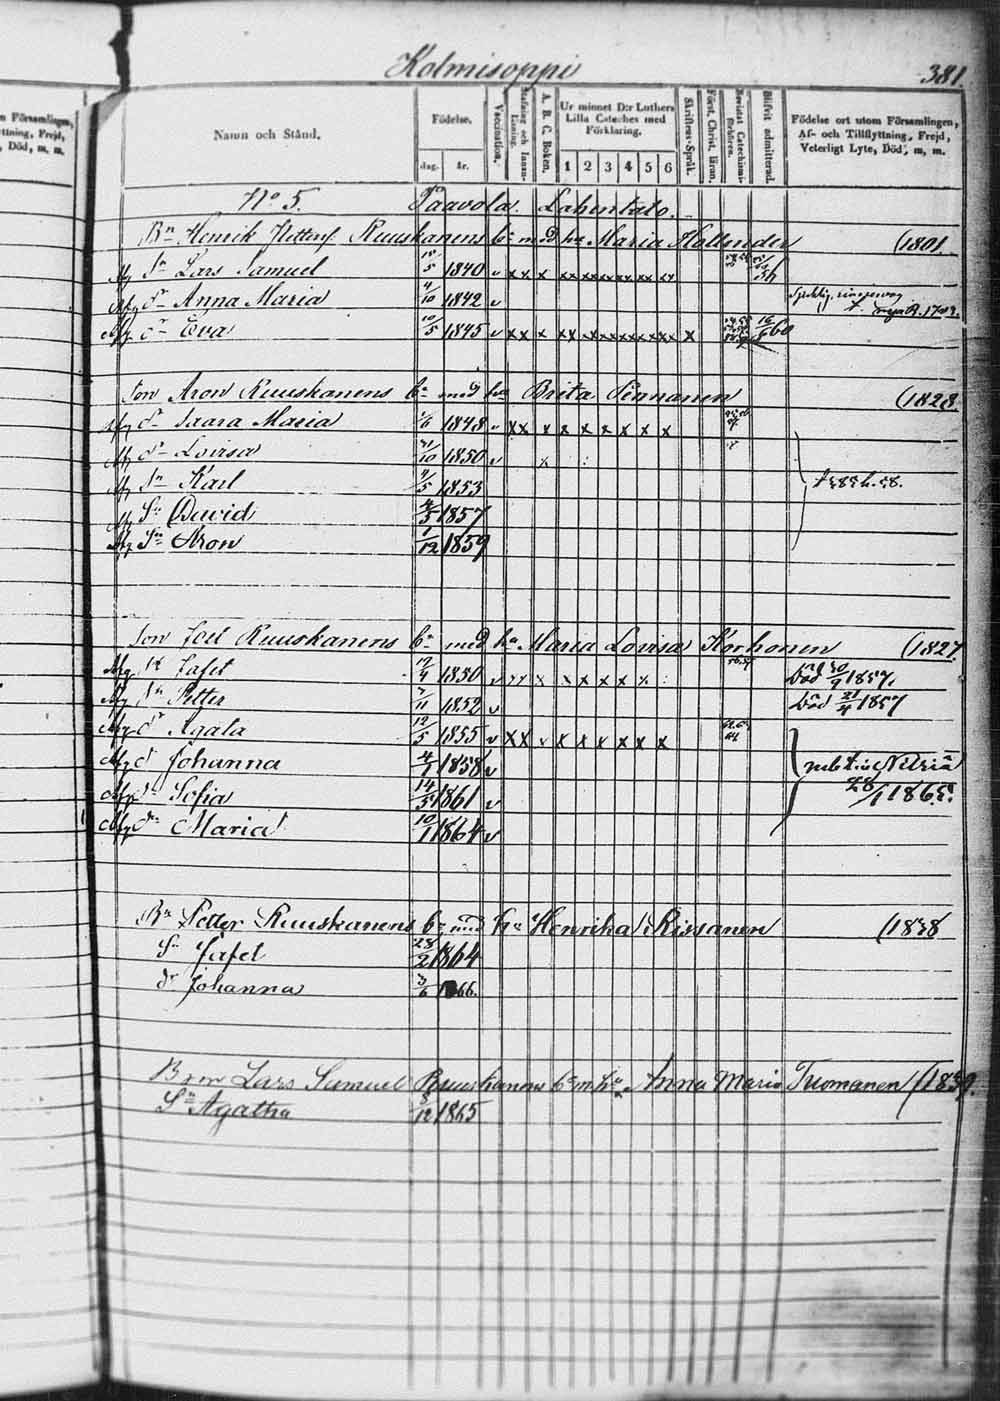 Kolmisoppi
381.
n Församlingen,
ttning, Frejd,
, Död, m, m.
Namn och Stånd.
Födelse.
dag. år.
Vaccination.
Stafning och Innan-Läsning.
A. B. C. Boken.
Ur minnet D:r Luthers Lilla Cateches med Förklaring.
1 2 3 4 5 6
Skriftens-Språk.
Först. Christ. läran.
Bevistat Catechismi-förhören.
Blifvit admitterad.
Födelse ort utom Församlingen,
Af- och Tillflyttning, Frejd,
Veterligt Lyte, Död, m, m.
No 5. Paavola. Lahentalo.
Bn Henrik Pettersf. Ruuskanens bn med ha Maria Hollender (1801.
Sn Lars Samuel 5 1840 v x x x x x x x x x x x x x
dr Anna Maria 4/10 1842 v
dr Eva 10/5 1845 v x x x x x x x x x x x x x x x 60
Son Aron Ruuskanens bn med ha Brita Pennanen (1828.
dr Saara Maria 6 1848 v x x x x x x x x x
dr Lovisa 10 1850 v x
Sn Karl 7/5 1853
Sn David 4/5 1857
Sn Aron 1/12 1859
Son Joel Ruuskanens bn med ha Maria Lovisa Korhonen (1827.
Sn Jafet 4 1850 v x x x x x x x x Död 1857.
Sn Petter 11 1852 v Död 21/4 1857
dr Agata 12/5 1855 v x x v x x x x x x
dr Johanna 4/1 1858 v
dr Sofia 14/5 1861 v 28/1 1865.
dr Maria 10/1 1864 v
Bn Petter Ruuskanens bn med ha Henrika Rissanen (1838
Sn Jafet 28/2 1864
dr Johanna 3/6 1866.
Brn Lars Samuel Ruuskanens bn m. ha Anna Maria Tuomanen (1839.
Sn Agatha 8/12 1865